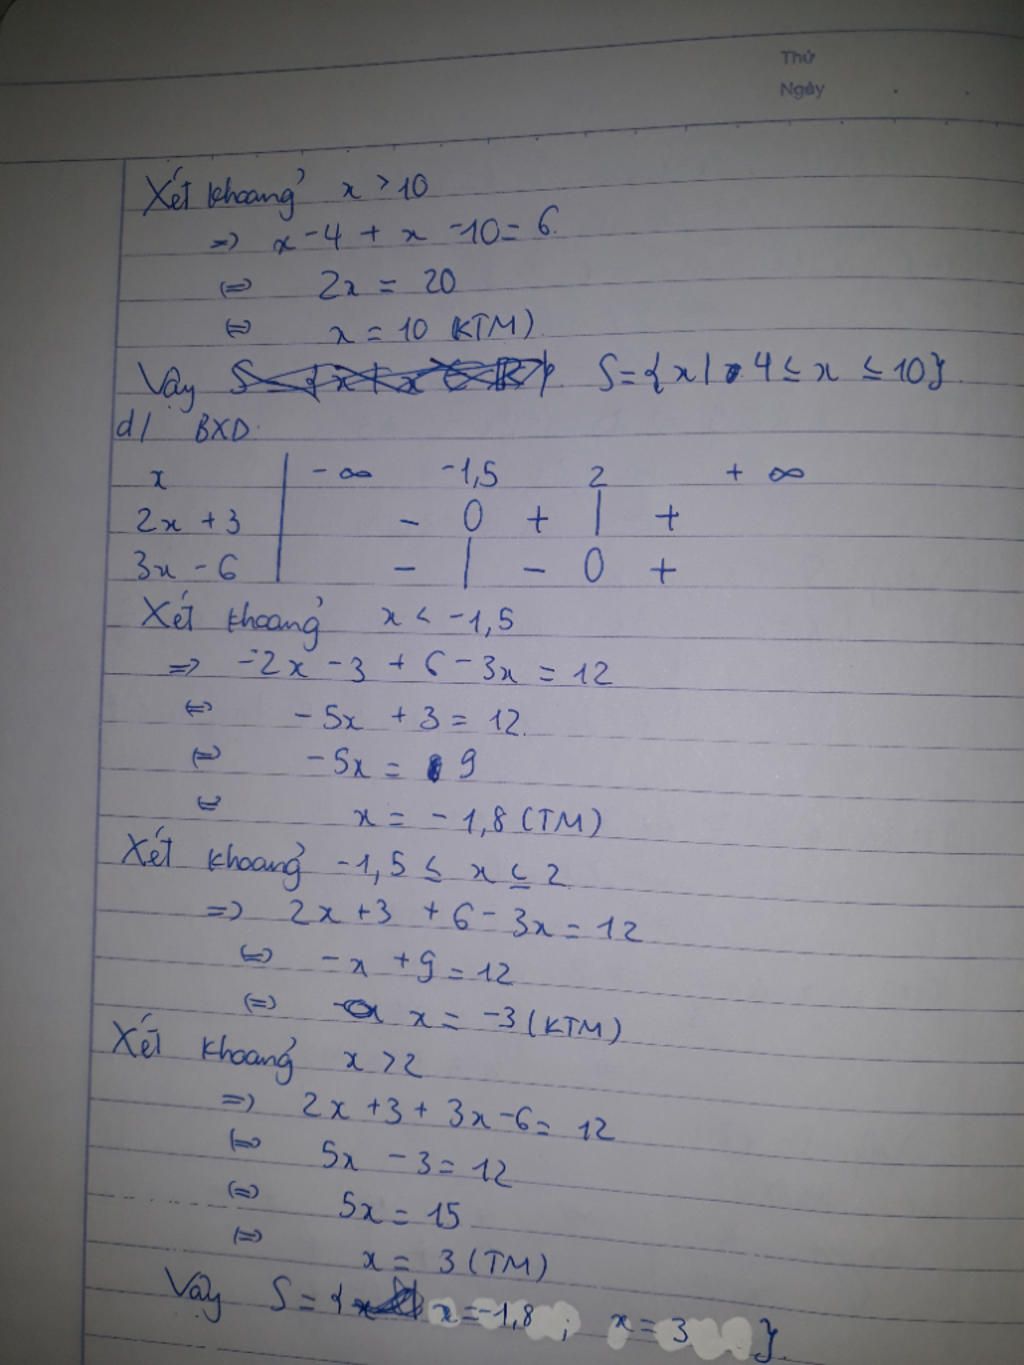 Thứ
Ngày
Xét khoảng x > 10
=> x - 4 + x - 10 = 6
<=> 2x = 20
<=> x = 10 (KTM)
Vậy S = {x | 4 ≤ x ≤ 10}
d/ BXD
x | -∞ -1,5 2 +∞
2x + 3 | - 0 + | +
3x - 6 | - | - 0 +
Xét khoảng x < -1,5
=> -2x - 3 + 6 - 3x = 12
<=> -5x + 3 = 12
<=> -5x = 9
<=> x = -1,8 (TM)
Xét khoảng -1,5 ≤ x ≤ 2
=> 2x + 3 + 6 - 3x = 12
<=> -x + 9 = 12
<=> x = -3 (KTM)
Xét khoảng x > 2
=> 2x + 3 + 3x - 6 = 12
<=> 5x - 3 = 12
<=> 5x = 15
<=> x = 3 (TM)
Vậy S = { x = -1,8 ; x = 3 }